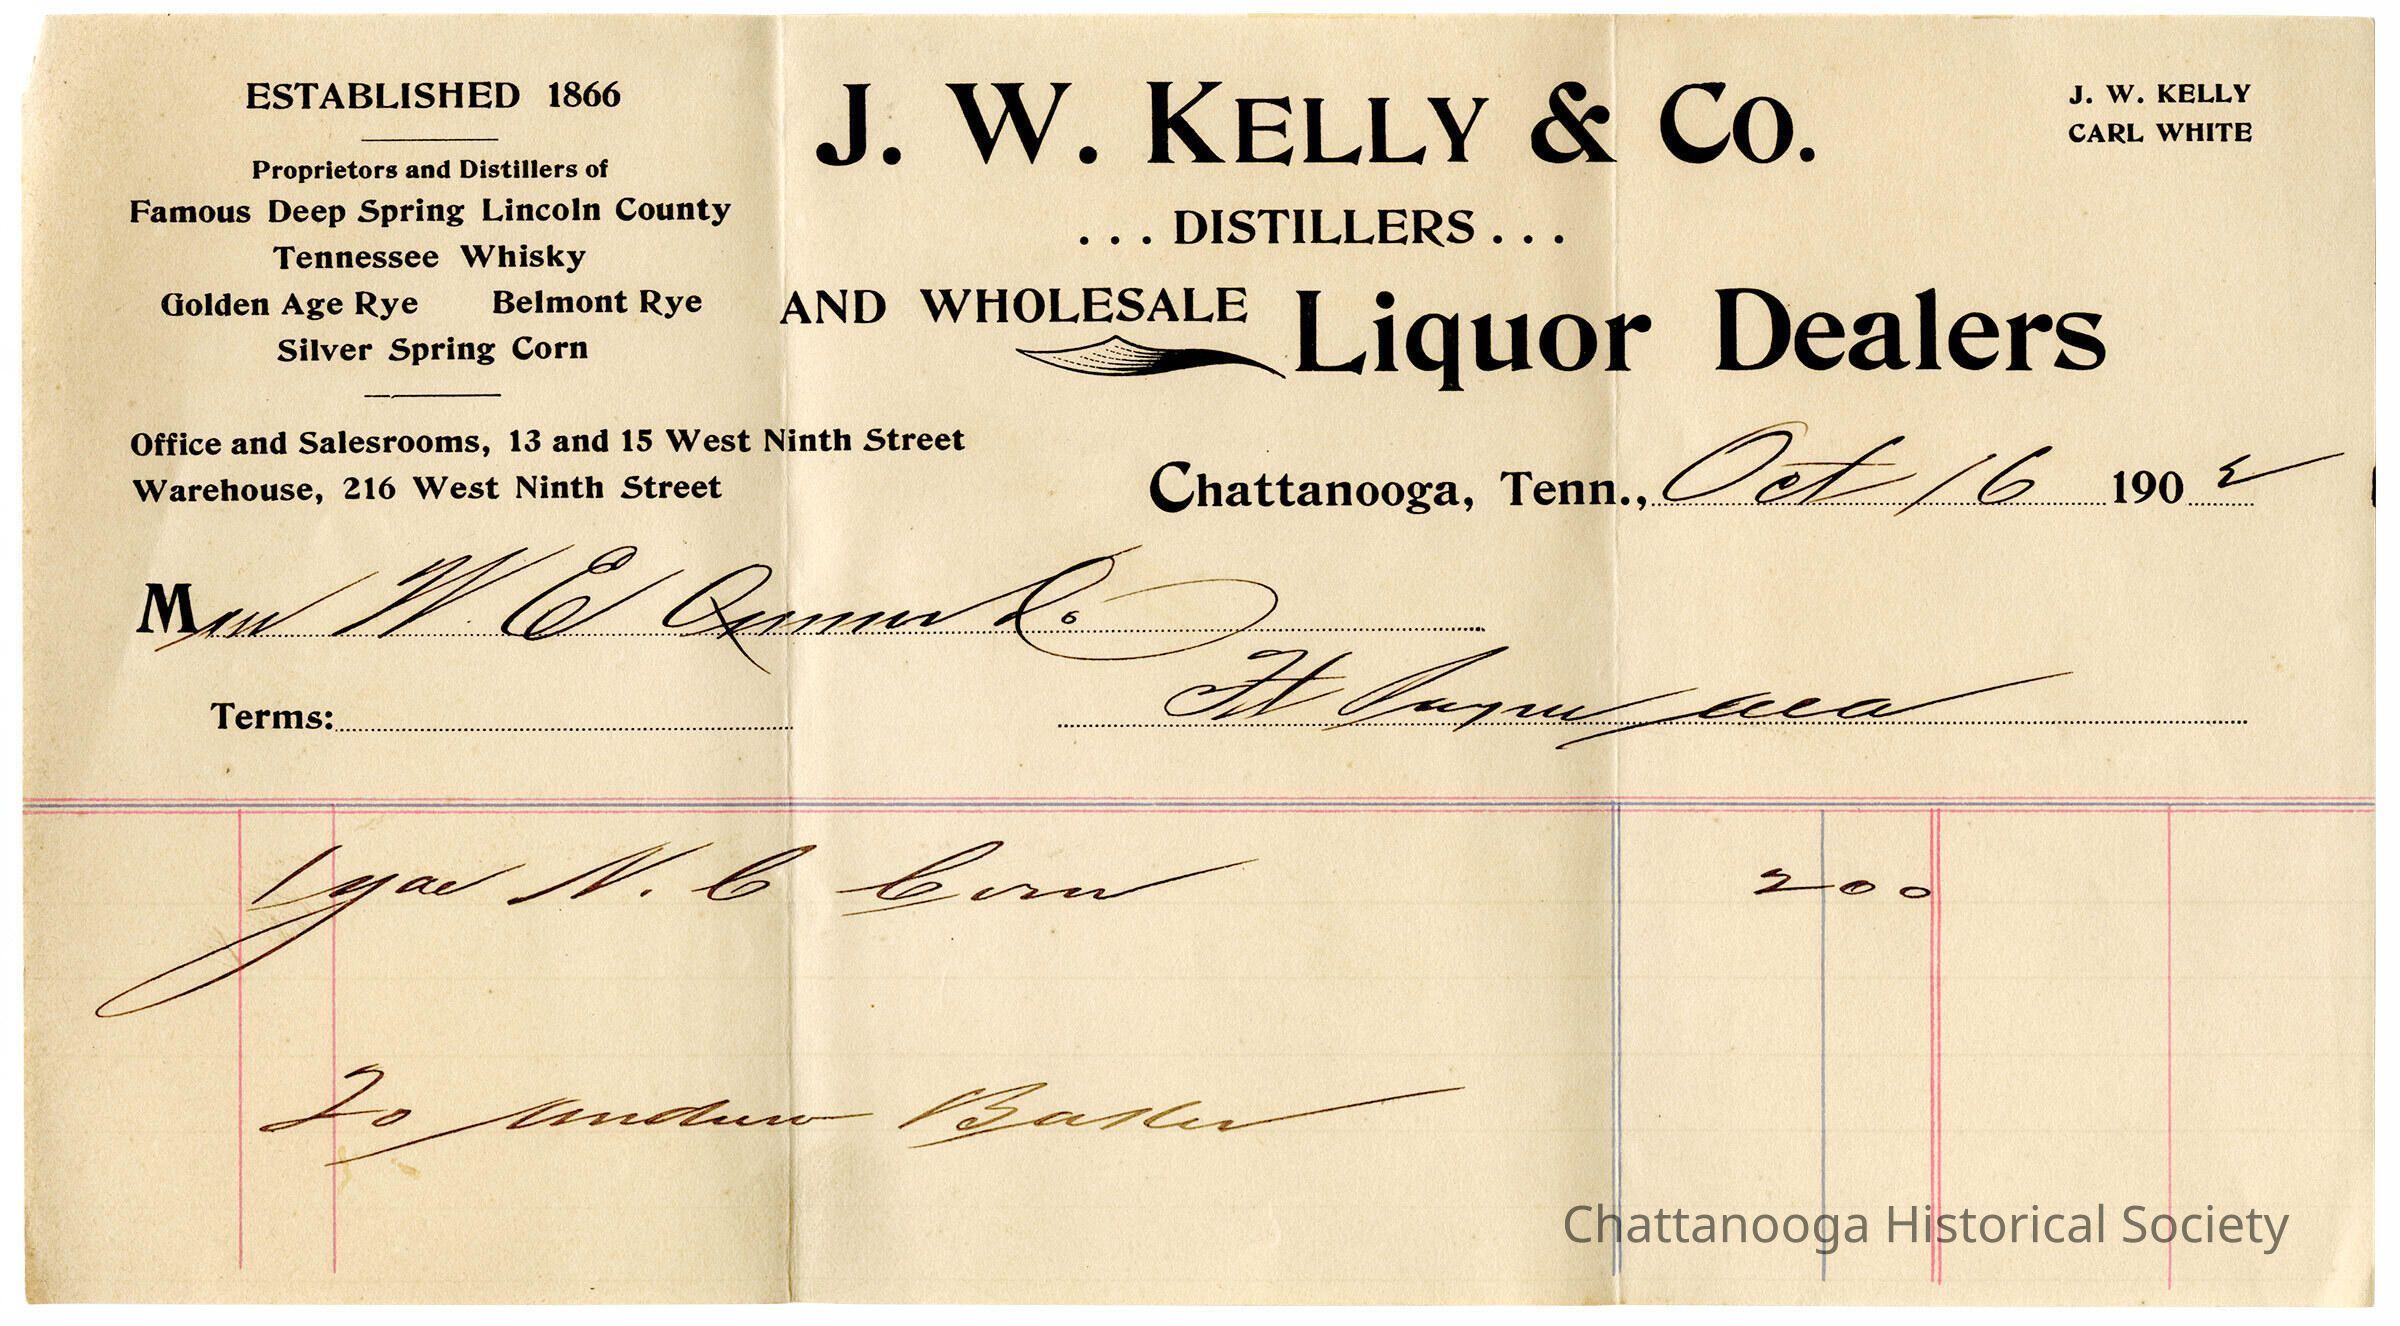 ESTABLISHED 1866
Proprietors and Distillers of
Famous Deep Spring Lincoln County
Tennessee Whisky
Golden Age Rye Belmont Rye
Silver Spring Corn
Office and Salesrooms, 13 and 15 West Ninth Street
Warehouse, 216 West Ninth Street
J. W. KELLY & CO.
... DISTILLERS ...
AND WHOLESALE Liquor Dealers
J. W. KELLY
CARL WHITE
Chattanooga, Tenn., Oct 16 1902
W E Co
Terms:
Ft
1 N. C Corn 200
To Andrew
Chattanooga Historical Society